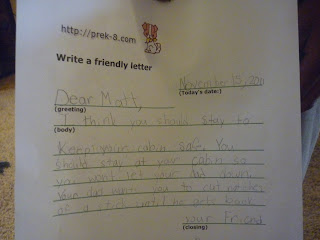 http://prek-8.com
Write a friendly letter
November 15, 201
(Today's date:)
Dear Matt,
(greeting)
I think you should stay to
(body)
Keep your cabin safe. You
should stay at your cabin so
you wont let your dad down.
Your dad wants you to cut notches
on a stick until he gets back
your friend
(closing)